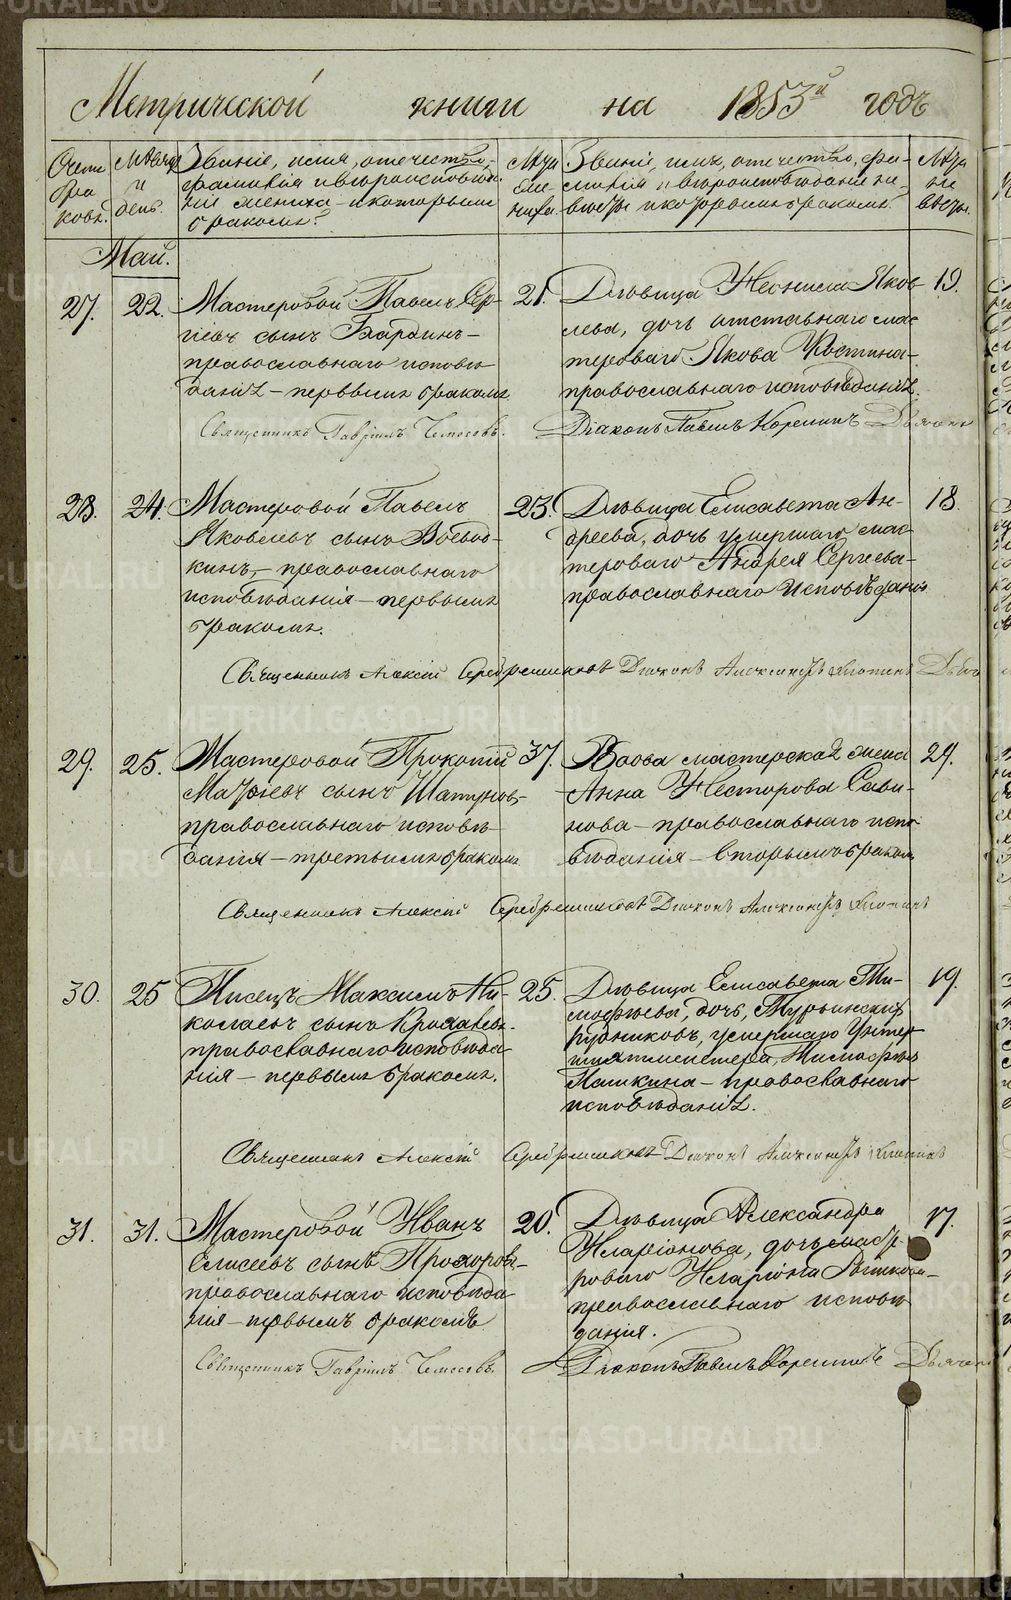 Метрической книги на 1853й годъ
Счетъ браковъ.
Мѣсяцъ и день.
Званіе, имя, отечество,
фамилія и вѣроисповѣда-
ніе жениха и которымъ
бракомъ?
Лѣта жениха.
Званіе, имя, отечество, фа-
милія и вѣроисповѣданіе не-
вѣсты и которымъ бракомъ.
Лѣта невѣсты.
Май.
27. 22.
Мастеровой Павелъ Сер-
гѣевъ сынъ Бардинъ –
православнаго исповѣ-
данія – первымъ бракомъ
21.
Дѣвица Неонила Яков-
лева, дочь отставнаго мас-
тероваго Якова Костина –
православнаго исповѣданія.
19.
Священникъ Гавріилъ
Діаконъ Павелъ
28. 24.
Мастеровой Павелъ
Яковлевъ сынъ Воевод-
кинъ, – православнаго
исповѣданія – первымъ
бракомъ.
23.
Дѣвица Елисавета Ан-
дреева, дочь умершаго мас-
тероваго Андрея Сергеева –
православнаго исповѣданія
18.
Священникъ Алексій Серебренниковъ Діаконъ Александръ
29. 25.
Мастеровой Прокопій
Матѳіевъ сынъ Шатуновъ,
православнаго исповѣ-
данія – третьимъ бракомъ
37.
Вдова мастерская жена
Анна Несторова Сави-
нова – православнаго испо-
вѣданія – вторымъ бракомъ
29.
Священникъ Алексій Серебренниковъ Діаконъ Александръ
30. 25
Писецъ Максимъ Ни-
колаевъ сынъ
православнаго исповѣда-
нія – первымъ бракомъ.
25.
Дѣвица Елисавета Ти-
моѳѣева, дочь, Турьинскихъ
рудниковъ, умершаго Унтер-
шихтмейстера, Тимоѳѣя
Пашкина – православнаго
исповѣданія.
19.
Священникъ Алексій Серебренниковъ Діаконъ Александръ
31. 31.
Мастеровой Иванъ
Елисеевъ сынъ Прохоровъ –
православнаго исповѣда-
нія – первымъ бракомъ
20.
Дѣвица Александра
Иларіонова, дочь масте-
роваго Иларіона
православнаго исповѣ-
данія.
17.
Священникъ Гавріилъ
Діаконъ Павелъ
METRIKI.GASO-URAL.RU